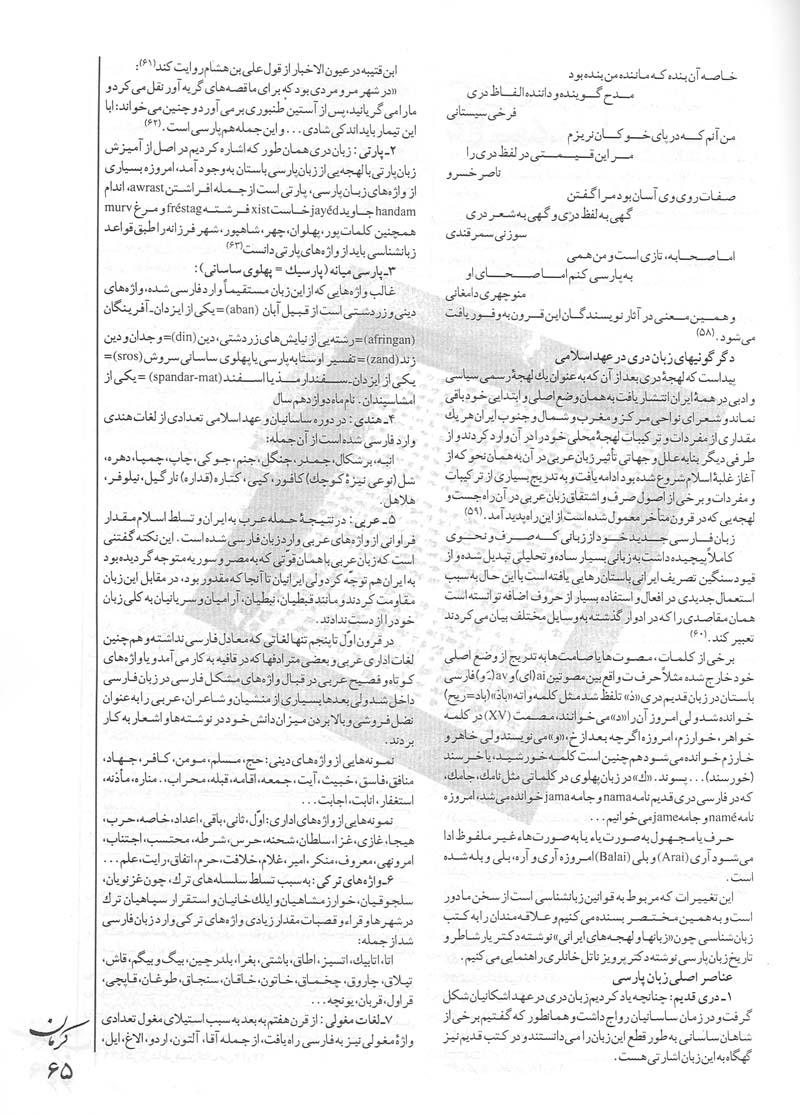 خاصه آن بنده که ماننده من بنده بود
مدح گوینده و داننده الفاظ دری
فرخی سیستانی
من آنم که در پای خوکان نریزم
مر این قیمتی در لفظ دری را
ناصر خسرو
صفات روی وی آسان بود مرا گفتن
گهی به لفظ دری و گهی به شعر دری
سوزنی سمرقندی
اما صحابه، تازی است و من همی
به پارسی کنم اما صحای او
منوچهری دامغانی
و همین معنی در آثار نویسندگان این قرون به وفور یافت
می‌شود.(۵۸)
دگرگونیهای زبان دری در عهد اسلامی
پیداست که لهجهٔ دری بعد از آن که به عنوان یك لهجهٔ رسمی سیاسی
و ادبی در همهٔ ایران انتشار یافت به همان وضع اصلی و ابتدایی خود باقی
نماند و شعرای نواحی مرکز و مغرب و شمال و جنوب ایران هر یك
مقداری از مفردات و ترکیبات لهجهٔ محلی خود را در آن وارد کردند و از
طرفی دیگر بنا به علل و جهاتی تأثیر زبان عربی در آن به همان نحو که از
آغاز غلبهٔ اسلام شروع شده بود ادامه یافت و به تدریج بسیاری از ترکیبات
و مفردات و برخی از اصول صرف و اشتقاق زبان عربی در آن راه جست و
لهجه‌یی که در قرون متأخر معمول شده است از این راه پدید آمد.(۵۹)
زبان فارسی جدید خود از زبانی که صرف و نحوی
کاملاً پیچیده داشت به زبانی بسیار ساده و تحلیلی تبدیل شده و از
قیود سنگین تصریف ایرانی باستان رهایی یافته است با این حال به سبب
استعمال جدیدی در افعال و استفاده بسیار از حروف اضافه توانسته است
همان مقاصدی را که در ادوار گذشته به وسایل مختلف بیان می کردند
تعبیر کند.(۶۰)
برخی از کلمات، مصوت‌ها یا صامت‌ها به تدریج از وضع اصلی
خود خارج شده مثلاً حرف ت واقع بین مصوتین ai (ای) و av (ـَ‌و) فارسی
باستان در زبان قدیم دری «ذ» تلفظ شد مثل کلمه واته «باذ» (باد=ریح)
خوانده شد ولی امروز آن را «د» می‌خوانند، مصمت (XV) در کلمه
خواهر، خوارزم، امروزه اگرچه بعد از خ، «و» می‌نویسند ولی خاهر و
خارزم خوانده می‌شود هم چنین است کلمه خورشید، یا خرسند
(خورسند)... پسوند. «ك» در زبان پهلوی در کلماتی مثل نامك، جامك،
که در فارسی دری قدیم نامه nama و جامه jama خوانده می‌شد، امروزه
نامه namé و جامه jame می‌خوانیم...
حرف یا مجهول به صورت یاء یا به صورت هاء غیر ملفوظ ادا
می‌شود آری (Arai) و بلی (Balai) امروزه آری و آره، بلی و بله شده
است.
این تغییرات که مربوط به قوانین زبانشناسی است از سخن ما دور
است و به همین مختصر بسنده می کنیم و علاقه‌مندان را به کتب
زبان شناسی چون «زبانها و لهجه های ایرانی» نوشته دکتر یارشاطر و
تاریخ زبان پارسی نوشته دکتر پرویز ناتل خانلری راهنمایی می کنیم.
عناصر اصلی زبان پارسی
۱ـ دری قدیم: چنانچه یاد کردیم زبان دری در عهد اشکانیان شکل
گرفت و در زمان ساسانیان رواج داشت و همانطور که گفتیم برخی از
شاهان ساسانی به طور قطع این زبان را می‌دانستند و در کتب قدیم نیز
گهگاه به این زبان اشارتی هست.
ابن قتیبه در عیون الاخبار از قول علی بن هشام روایت کند(۶۱):
«در شهر مرو مردی بود که برای ما قصه های گریه آور نقل می کرد و
ما را می گریانید، پس از آستین طنبوری برمی آورد و چنین می‌خواند: ابا
این تیمار باید اندکی شادی... و این جمله هم پارسی است.(۶۲)
۲ـ پارتی: زبان دری همان طور که اشاره کردیم در اصل از آمیزش
زبان پارتی با لهجه‌یی از زبان پارسی باستان به وجود آمد، امروزه بسیاری
از واژه های زبان پارسی، پارتی است از جمله افراشتن awrast، اندام
handam جاوید jayéd خاست xist فرشته fréstag و مرغ murv
همچنین کلمات پور، پهلوان، چهر، شاهپور، شهر فرزانه را طبق قواعد
زبانشناسی باید از واژه های پارتی دانست(۶۳)
۳ـ پارسی میانه (پارسیك = پهلوی ساسانی):
غالب واژه هایی که از این زبان مستقیماً وارد فارسی شده، واژه های
دینی و زردشتی است از قبیل آبان (aban) = یکی از ایزدان ـ آفرینگان
(afringan) = رشته‌یی از نیایش های زردشتی، دین (din) = وجدان و دین
زند (zand) = تفسیر اوستا به پارسی یا پهلوی ساسانی سروش (sros) =
یکی از ایزدان ـ سفندارمذ یا اسفند (spandar-mat) = یکی از
امشاسپندان. نام ماه دوازدهم سال
۴ـ هندی: در دوره ساسانیان و عهد اسلامی تعدادی از لغات هندی
وارد فارسی شده است از آن جمله:
انبه، برشکال، چمدر، جنگل، جنم، جوکی، چاپ، چمپا، دهره،
شل (نوعی نیزهٔ کوچك) کافور، کپی، کتاره (قداره) نارگیل، نیلوفر،
هلاهل.
۵ـ عربی: در نتیجهٔ حمله عرب به ایران و تسلط اسلام مقدار
فراوانی از واژه های عربی وارد زبان فارسی شده است. این نکته گفتنی
است که زبان عربی با همان قوّتی که به مصر و سوریه متوجه گردیده بود
به ایران هم توجّه کرد ولی ایرانیان تا آنجا که مقدور بود، در مقابل این زبان
مقاومت کردند و مانند قبطیان، نبطیان، آرامیان و سریانیان به کلی زبان
خود را از دست ندادند.
در قرون اوّل تا پنجم تنها لغاتی که معادل فارسی نداشته و هم چنین
لغات اداری عربی و بعضی مترادفها که در قافیه به کار می آمد و یا واژه های
کوتاه و فصیح عربی در قبال واژه های مشکل فارسی در زبان فارسی
داخل شد ولی بعدها بسیاری از منشیان و شاعران، عربی را به عنوان
فضل فروشی و بالا بردن میزان دانش خود در نوشته ها و اشعار به کار
بردند.
نمونه هایی از واژه های دینی: حج، مسلم، مومن، کافر، جهاد،
منافق، فاسق، خبیث، آیت، جمعه، اقامه، قبله، محراب،. مناره، مأذنه،
استغفار، انابت، اجابت...
نمونه هایی از واژه های اداری: اوّل، ثانی، باقی، اعداد، خاصه، حرب،
هیجا، غازی، غزا، سلطان، شحنه، حرس، شرطه، محتسب، اجتناب،
امرونهی، معروف، منکر، امیر، غلام، خلافت، حرم، اتفاق، رایت، علم...
۶ـ واژه های ترکی: به سبب تسلط سلسله های ترك، چون غزنویان،
سلجوقیان، خوارزمشاهیان و ایلك خانیان و استقرار سپاهیان ترك
در شهرها و قراء و قصبات مقدار زیادی واژه های ترکی وارد زبان فارسی
شد از جمله:
اتا، اتابیك، اتسیز، اطاق، باشتی، بغرا، بلدرچین، بیگ و بیگم، قاش،
تیلاق، چاروق، چخماق، خاتون، خاقان، سنجاق، طوغان، قاپچی،
قراول، قربان، یونچه...
۷ـ لغات مغولی: از قرن هفتم به بعد به سبب استیلای مغول تعدادی
واژهٔ مغولی نیز به فارسی راه یافت، از جمله آقا، آلتون، اردو، الاغ، ایل،
کرمان
۶۵